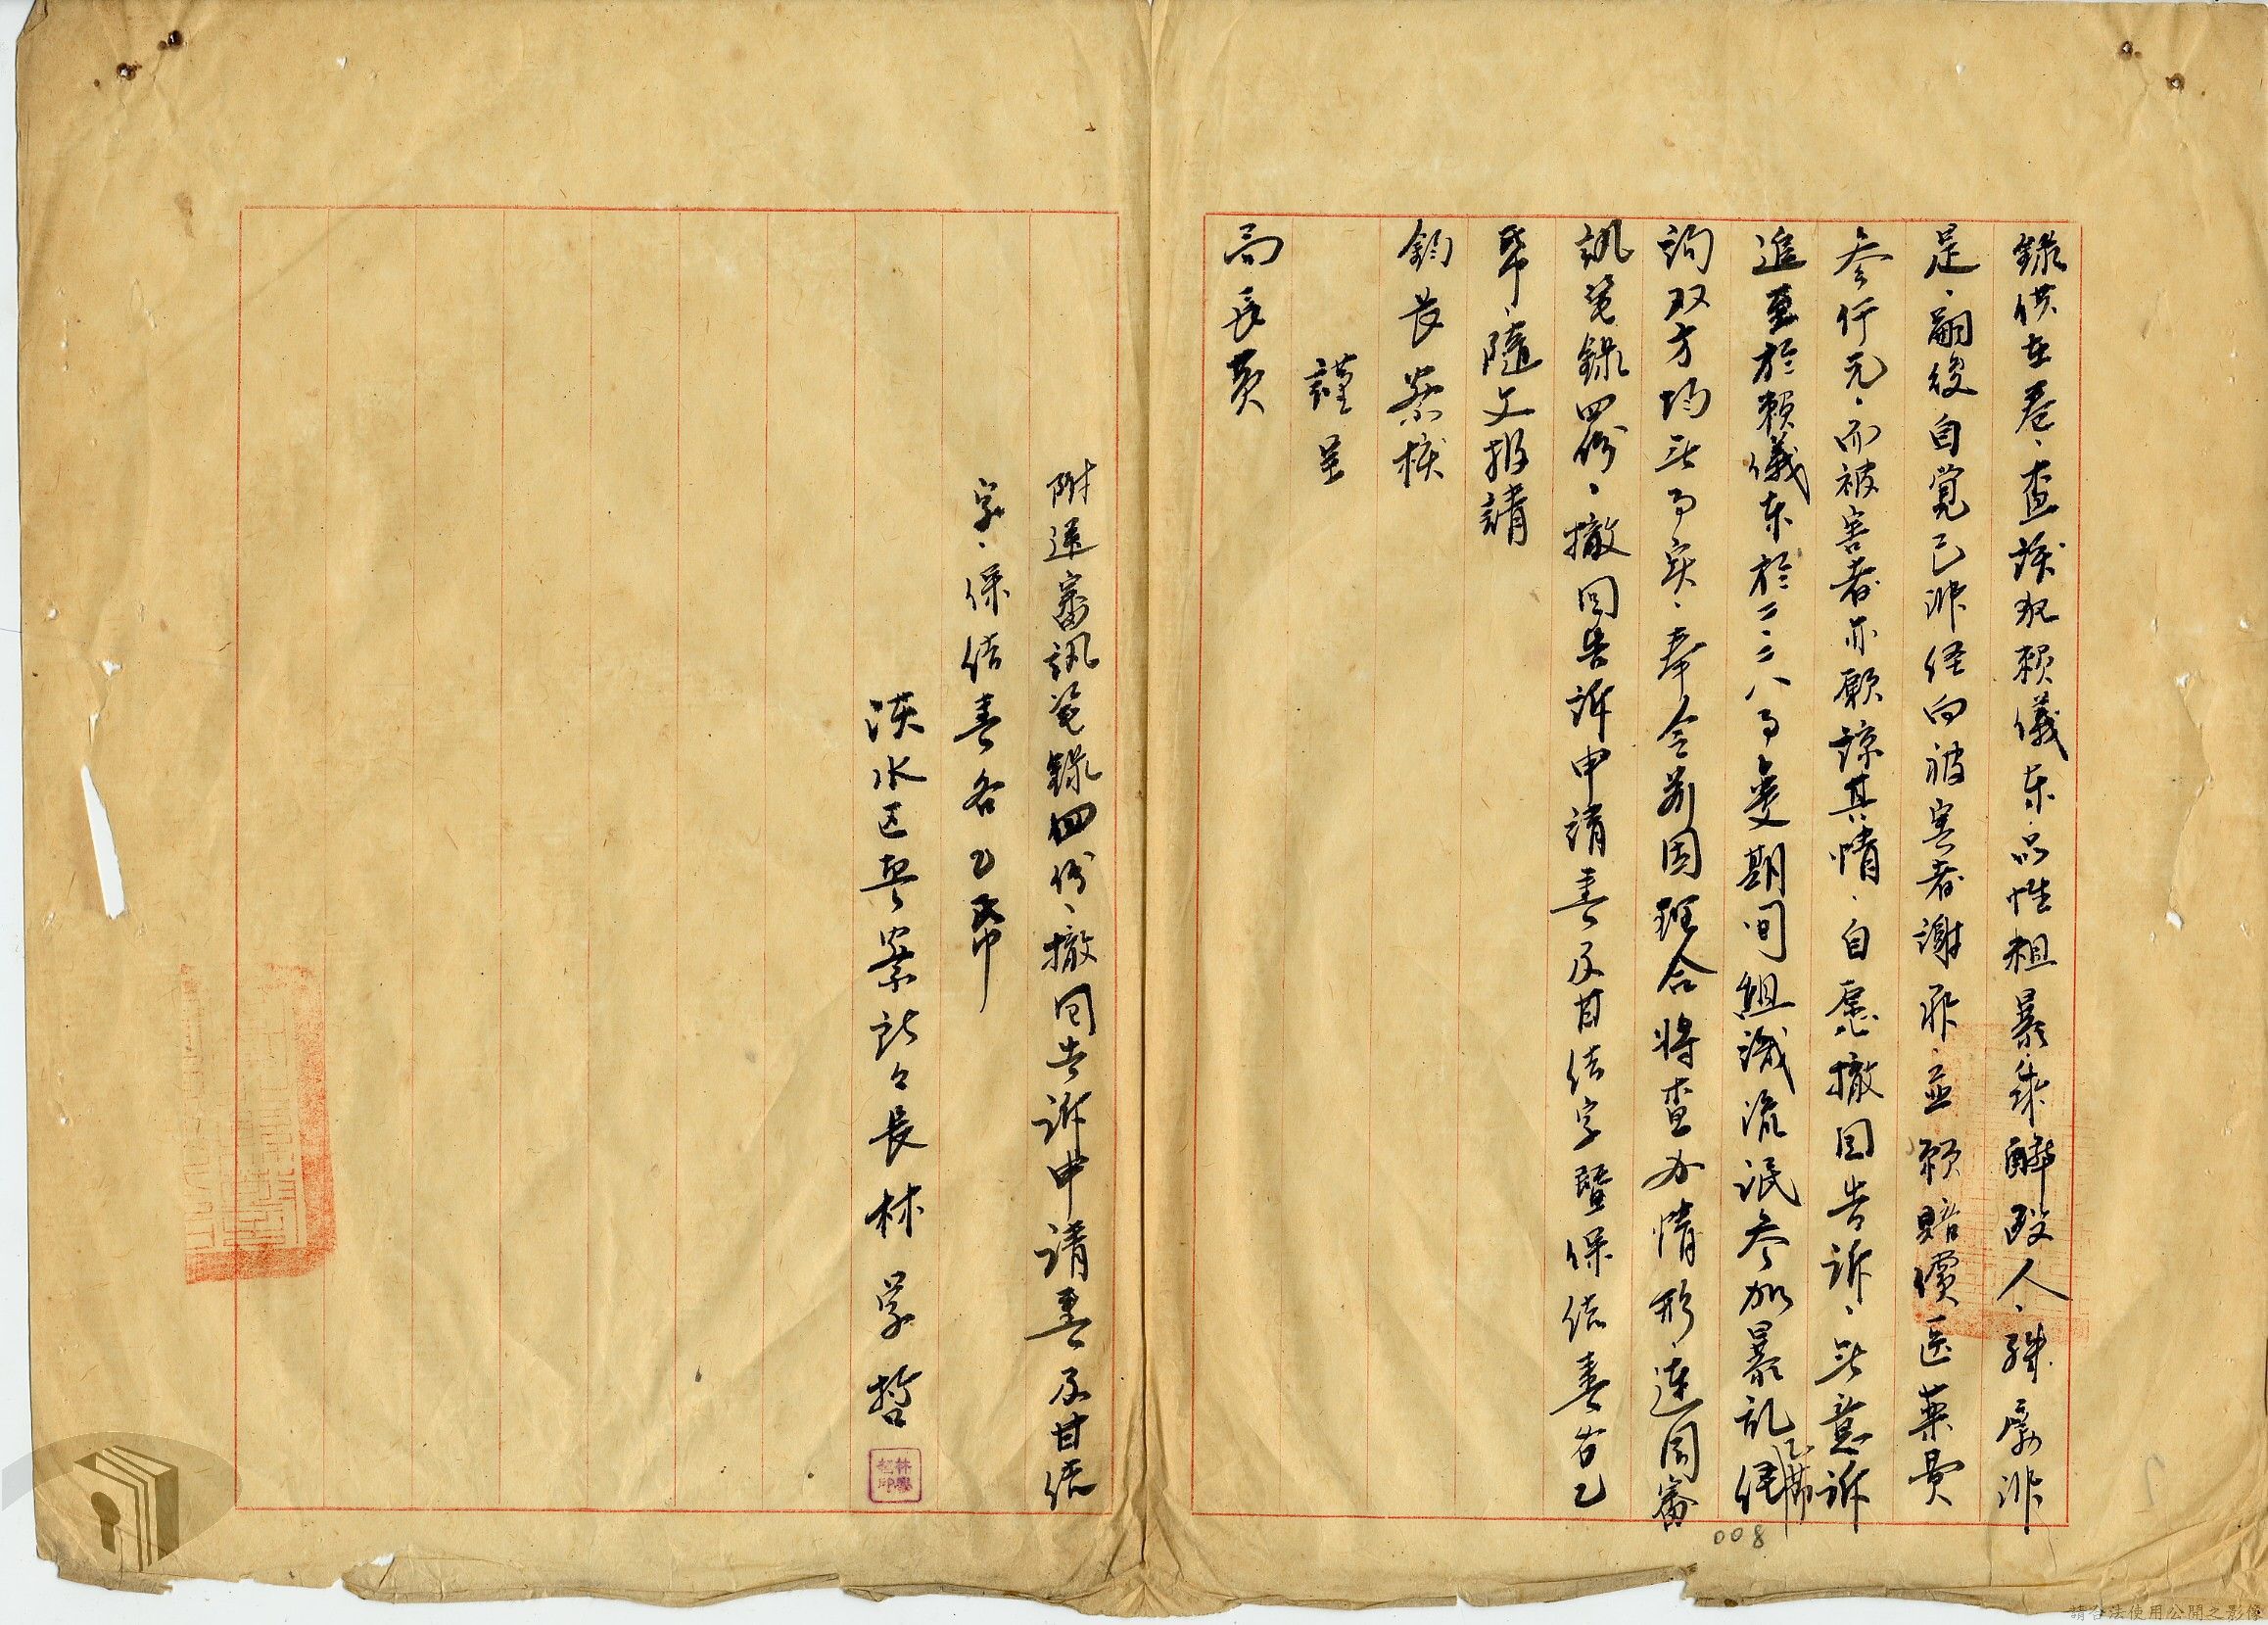 錄供在卷、查該犯賴儀東品性粗暴乘醉毆人、殊屬非
是、嗣後自覚已非経向被害者謝罪、並願賠償医薬費
叁仟元、而被害者亦願諒其情、自愿撤回告訴、無意訴
追至於賴儀東於二二八事変期间組識流氓参加暴乱経
乙節
詢双方均無事实、奉令前因理合将查办情形、連同審
訊筆錄四份、撤回告訴申請書及甘结字暨保结書各乙
帋、隨文报請
鈞長察核
謹呈
局長龔
附送審訊筆錄四份、撤回告訴申请書及甘结
字、保结書各乙帋
淡水区警察所々長林学哲
林學哲印
008
請合法使用公開之影像